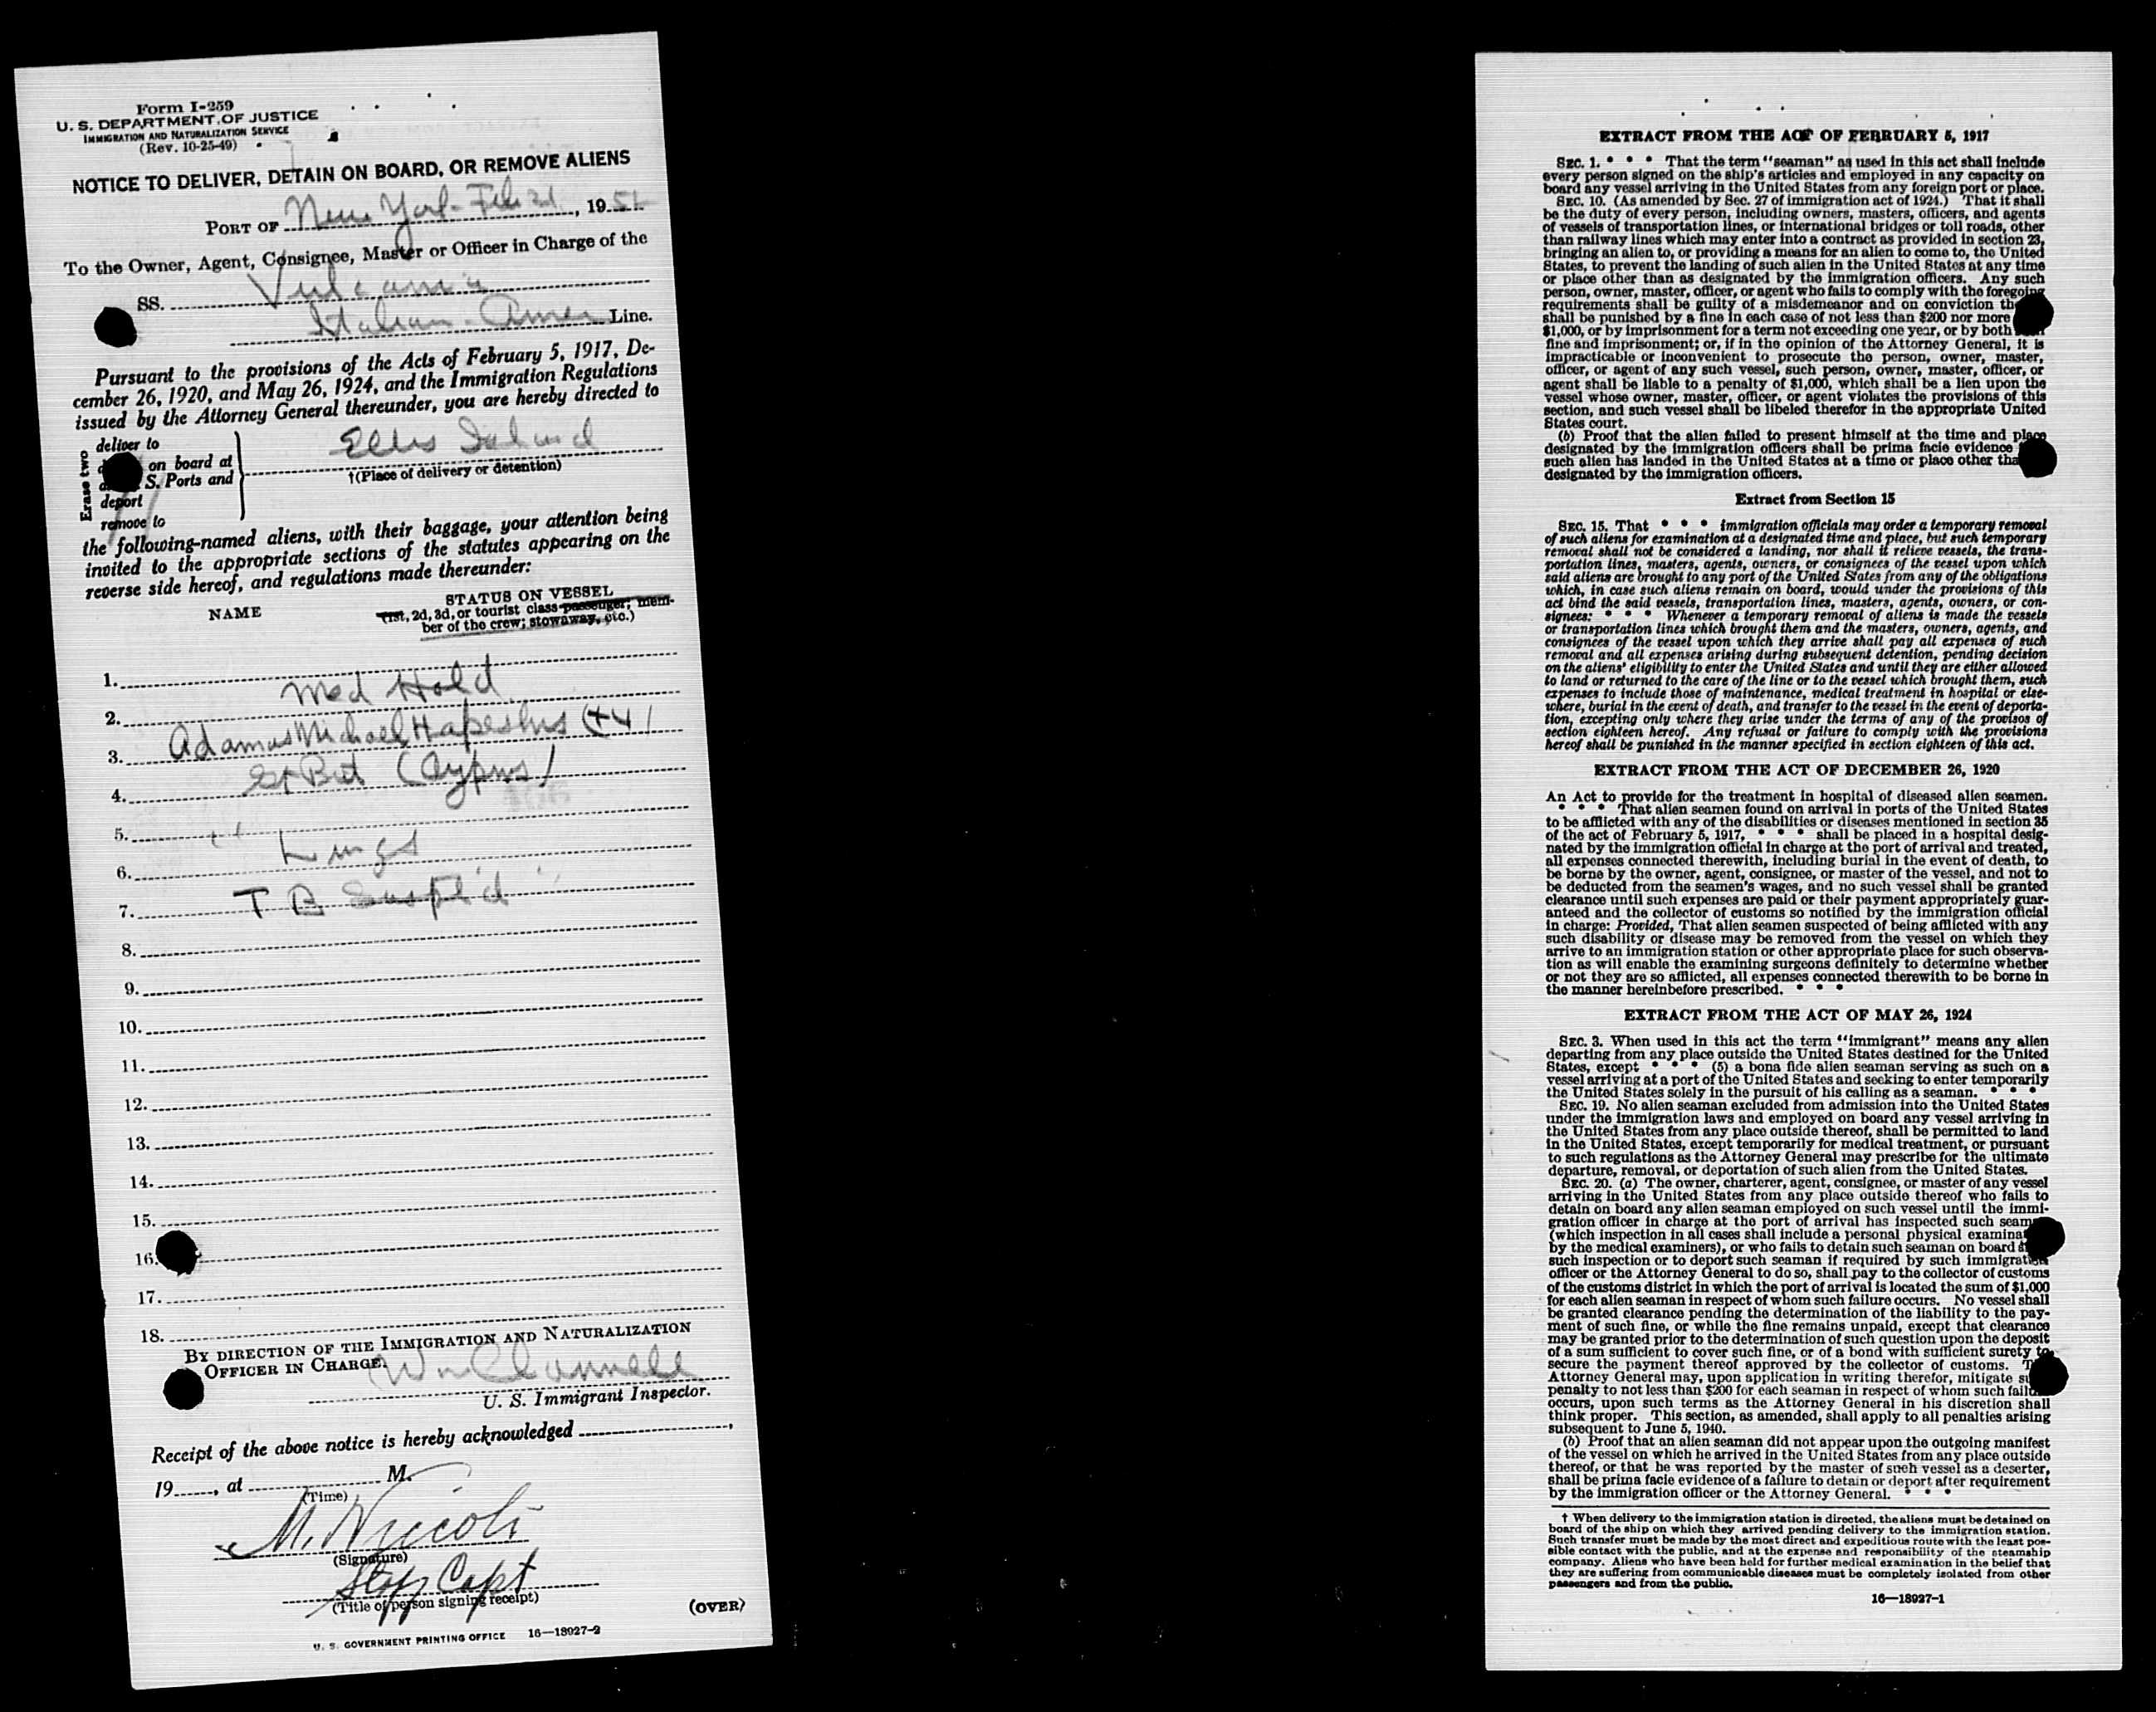 Form I-259
U. S. DEPARTMENT OF JUSTICE
IMMIGRATION AND NATURALIZATION SERVICE
(Rev. 10-25-49)
NOTICE TO DELIVER, DETAIN ON BOARD, OR REMOVE ALIENS
PORT OF New York - Feb 21, 195
To the Owner, Agent, Consignee, Master or Officer in Charge of the
SS. Vulcania
Italian - Amer Line.
Pursuant to the provisions of the Acts of February 5, 1917, De-
cember 26, 1920, and May 26, 1924, and the Immigration Regulations
issued by the Attorney General thereunder, you are hereby directed to
Erase two
deliver to
on board at
S. Ports and
deport
remove to
Ellis Island
†(Place of delivery or detention)
the following-named aliens, with their baggage, your attention being
invited to the appropriate sections of the statutes appearing on the
reverse side hereof, and regulations made thereunder:
NAME
STATUS ON VESSEL
(1st, 2d, 3d, or tourist class passenger; mem-
ber of the crew; stowaway, etc.)
1.
2. Med Hold
3. Adamos Michael Hapeshis (44)
4. Gt Brit (Cyprus)
5.
6. Lungs
7. T B Suspect
8.
9.
10.
11.
12.
13.
14.
15.
16.
17.
18.
BY DIRECTION OF THE IMMIGRATION AND NATURALIZATION
OFFICER IN CHARGE.
U. S. Immigrant Inspector.
Receipt of the above notice is hereby acknowledged ,
19 , at M.
(Time)
(Signature)
Staff Capt
(Title of person signing receipt)
(OVER)
U. S. GOVERNMENT PRINTING OFFICE 16—18927-2
EXTRACT FROM THE ACT OF FEBRUARY 5, 1917
SEC. 1. * * * That the term "seaman" as used in this act shall include
every person signed on the ship's articles and employed in any capacity on
board any vessel arriving in the United States from any foreign port or place.
SEC. 10. (As amended by Sec. 27 of immigration act of 1924.) That it shall
be the duty of every person, including owners, masters, officers, and agents
of vessels of transportation lines, or international bridges or toll roads, other
than railway lines which may enter into a contract as provided in section 23,
bringing an alien to, or providing a means for an alien to come to, the United
States, to prevent the landing of such alien in the United States at any time
or place other than as designated by the immigration officers. Any such
person, owner, master, officer, or agent who fails to comply with the foregoing
requirements shall be guilty of a misdemeanor and on conviction
shall be punished by a fine in each case of not less than $200 nor more
$1,000, or by imprisonment for a term not exceeding one year, or by both
fine and imprisonment; or, if in the opinion of the Attorney General, it is
impracticable or inconvenient to prosecute the person, owner, master,
officer, or agent of any such vessel, such person, owner, master, officer, or
agent shall be liable to a penalty of $1,000, which shall be a lien upon the
vessel whose owner, master, officer, or agent violates the provisions of this
section, and such vessel shall be libeled therefor in the appropriate United
States court.
(b) Proof that the alien failed to present himself at the time and place
designated by the immigration officers shall be prima facie evidence
such alien has landed in the United States at a time or place other
designated by the immigration officers.
Extract from Section 15
SEC. 15. That * * * immigration officials may order a temporary removal
of such aliens for examination at a designated time and place, but such temporary
removal shall not be considered a landing, nor shall it relieve vessels, the trans-
portation lines, masters, agents, owners, or consignees of the vessel upon which
said aliens are brought to any port of the United States from any of the obligations
which, in case such aliens remain on board, would under the provisions of this
act bind the said vessels, transportation lines, masters, agents, owners, or con-
signees: * * * Whenever a temporary removal of aliens is made the vessels
or transportation lines which brought them and the masters, owners, agents, and
consignees of the vessel upon which they arrive shall pay all expenses of such
removal and all expenses arising during subsequent detention, pending decision
on the aliens' eligibility to enter the United States and until they are either allowed
to land or returned to the care of the line or to the vessel which brought them, such
expenses to include those of maintenance, medical treatment in hospital or else-
where, burial in the event of death, and transfer to the vessel in the event of deporta-
tion, excepting only where they arise under the terms of any of the provisos of
section eighteen hereof. Any refusal or failure to comply with the provisions
hereof shall be punished in the manner specified in section eighteen of this act.
EXTRACT FROM THE ACT OF DECEMBER 26, 1920
An Act to provide for the treatment in hospital of diseased alien seamen.
* * * That alien seamen found on arrival in ports of the United States
to be afflicted with any of the disabilities or diseases mentioned in section 35
of the act of February 5, 1917, * * * shall be placed in a hospital desig-
nated by the immigration official in charge at the port of arrival and treated,
all expenses connected therewith, including burial in the event of death, to
be borne by the owner, agent, consignee, or master of the vessel, and not to
be deducted from the seamen's wages, and no such vessel shall be granted
clearance until such expenses are paid or their payment appropriately guar-
anteed and the collector of customs so notified by the immigration official
in charge: Provided, That alien seamen suspected of being afflicted with any
such disability or disease may be removed from the vessel on which they
arrive to an immigration station or other appropriate place for such observa-
tion as will enable the examining surgeons definitely to determine whether
or not they are so afflicted, all expenses connected therewith to be borne in
the manner hereinbefore prescribed. * * *
EXTRACT FROM THE ACT OF MAY 26, 1924
SEC. 3. When used in this act the term "immigrant" means any alien
departing from any place outside the United States destined for the United
States, except * * * (5) a bona fide alien seaman serving as such on a
vessel arriving at a port of the United States and seeking to enter temporarily
the United States solely in the pursuit of his calling as a seaman. * * *
SEC. 19. No alien seaman excluded from admission into the United States
under the immigration laws and employed on board any vessel arriving in
the United States from any place outside thereof, shall be permitted to land
in the United States, except temporarily for medical treatment, or pursuant
to such regulations as the Attorney General may prescribe for the ultimate
departure, removal, or deportation of such alien from the United States.
SEC. 20. (a) The owner, charterer, agent, consignee, or master of any vessel
arriving in the United States from any place outside thereof who fails to
detain on board any alien seaman employed on such vessel until the immi-
gration officer in charge at the port of arrival has inspected such
(which inspection in all cases shall include a personal physical
by the medical examiners), or who fails to detain such seaman on board
such inspection or to deport such seaman if required by such
officer or the Attorney General to do so, shall pay to the collector of customs
of the customs district in which the port of arrival is located the sum of $1,000
for each alien seaman in respect of whom such failure occurs. No vessel shall
be granted clearance pending the determination of the liability to the pay-
ment of such fine, or while the fine remains unpaid, except that clearance
may be granted prior to the determination of such question upon the deposit
of a sum sufficient to cover such fine, or of a bond with sufficient surety to
secure the payment thereof approved by the collector of customs.
Attorney General may, upon application in writing therefor, mitigate
penalty to not less than $200 for each seaman in respect of whom such
occurs, upon such terms as the Attorney General in his discretion shall
think proper. This section, as amended, shall apply to all penalties arising
subsequent to June 5, 1940.
(b) Proof that an alien seaman did not appear upon the outgoing manifest
of the vessel on which he arrived in the United States from any place outside
thereof, or that he was reported by the master of such vessel as a deserter,
shall be prima facie evidence of a failure to detain or deport after requirement
by the immigration officer or the Attorney General. * * *
† When delivery to the immigration station is directed, the aliens must be detained on
board of the ship on which they arrived pending delivery to the immigration station.
Such transfer must be made by the most direct and expeditious route with the least pos-
sible contact with the public, and at the expense and responsibility of the steamship
company. Aliens who have been held for further medical examination in the belief that
they are suffering from communicable diseases must be completely isolated from other
passengers and from the public.
16—18927-1